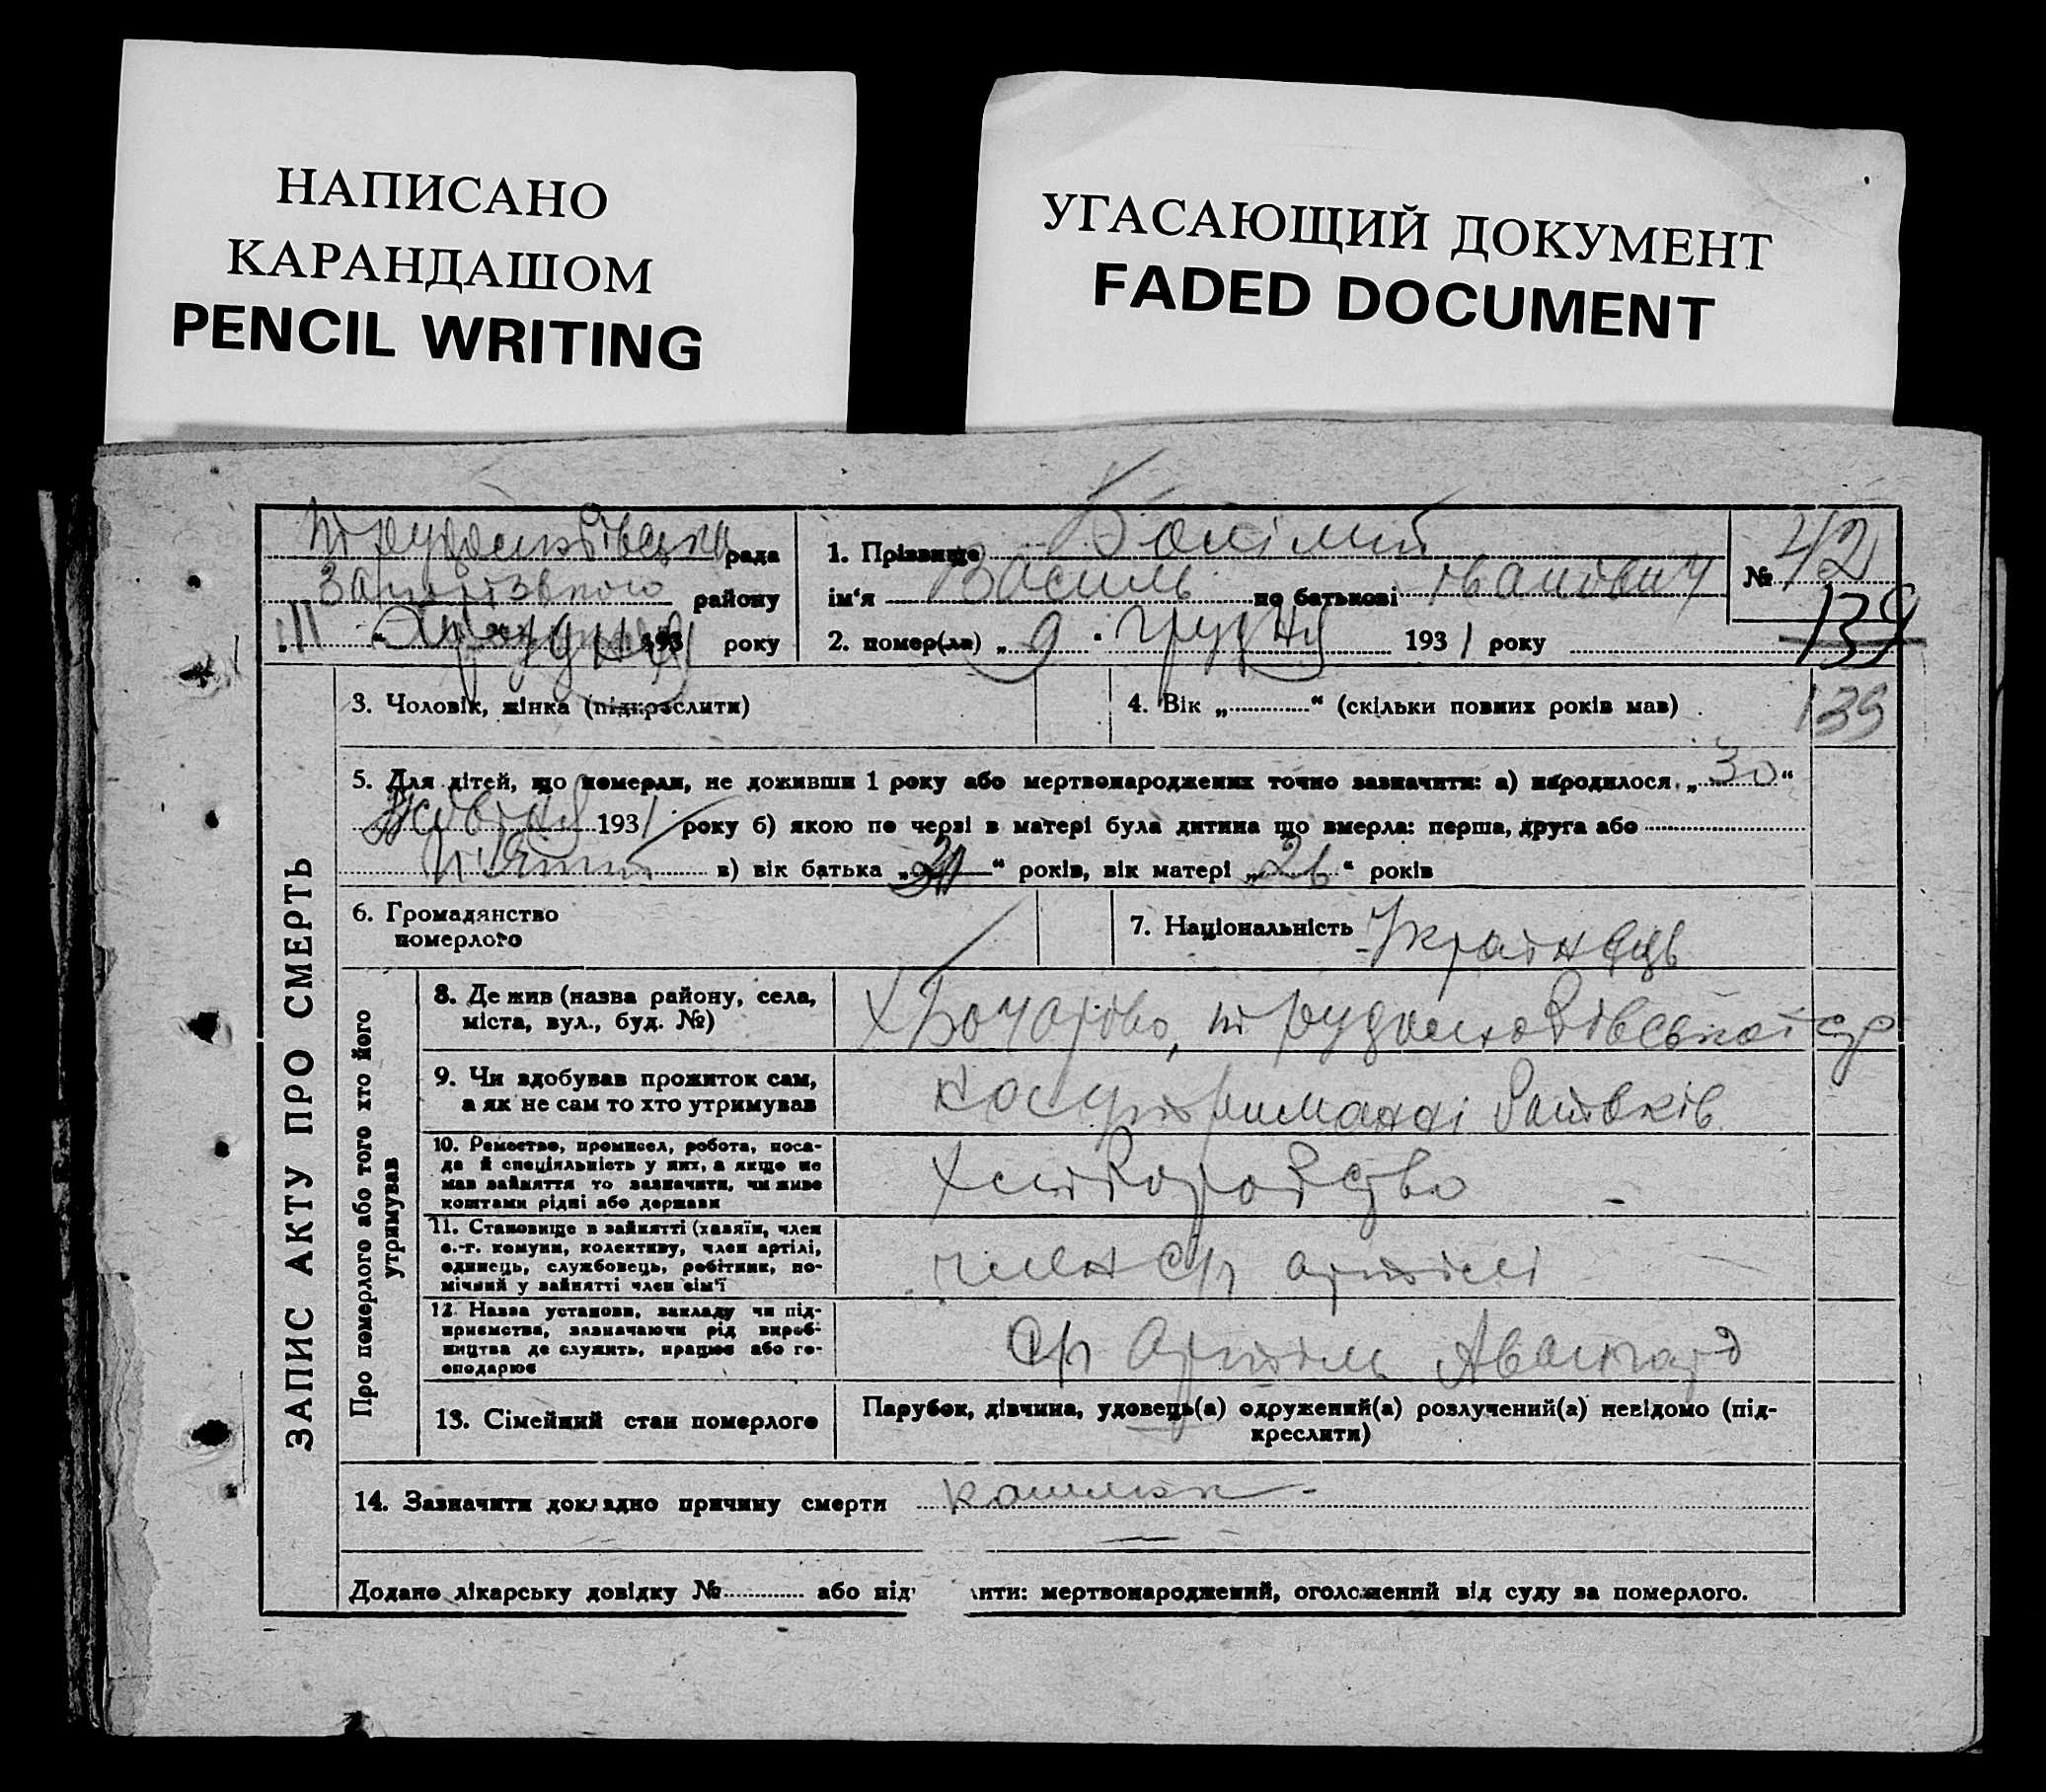 НАПИСАНО
КАРАНДАШОМ
PENCIL WRITING
УГАСАЮЩИЙ ДОКУМЕНТ
FADED DOCUMENT
рада
району
„11 “ грудня 1931 року
1. Прізвище
ім'я Василь по батькові Іванович
2. помер(ла) „ 9 “ грудня 1931 року
№ 42
139
139
3. Чоловік, жінка (підкреслити)
4. Вік „ “ (скільки повних років мав)
5. Для дітей, що померли, не доживши 1 року або мертвонароджених точно зазначити: а) народилося „ 30 “
Жовтня 1931 року б) якою по черзі в матері була дитина що вмерла: перша, друга або
п'ятий в) вік батька „ “ років, вік матері „ 26 “ років
6. Громадянство
померлого
7. Національність Українець
ЗАПИС АКТУ ПРО СМЕРТЬ
Про померлого або того хто його
утримував
8. Де жив (назва району, села,
міста, вул., буд. №)
9. Чи здобував прожиток сам,
а як не сам то хто утримував
на утриманні батьків
10. Ремество, промисел, робота, поса-
да й спеціяльність у них, а якще не
мав зайняття то зазначити, чи живе
коштами рідні або держави
Хліборобство
11. Становище в зайнятті (хазяїн, член
с.-г. комуни, колективу, член артілі,
одинець, службовець, робітник, по-
мічний у зайнятті член сім'ї
член с/г артілі
12. Назва установи, закладу чи під-
приємства, зазначаючи рід вироб-
ництва де служить, працює або го-
сподарює
С/г Артіль Авангард
13. Сімейний стан померлого
Парубок, дівчина, удовець(а) одружений(а) розлучений(а) невідомо (під-
креслити)
14. Зазначити докладно причину смерти кашлюк
Додано лікарську довідку № або під ити: мертвонароджений, оголошений від суду за померлого.